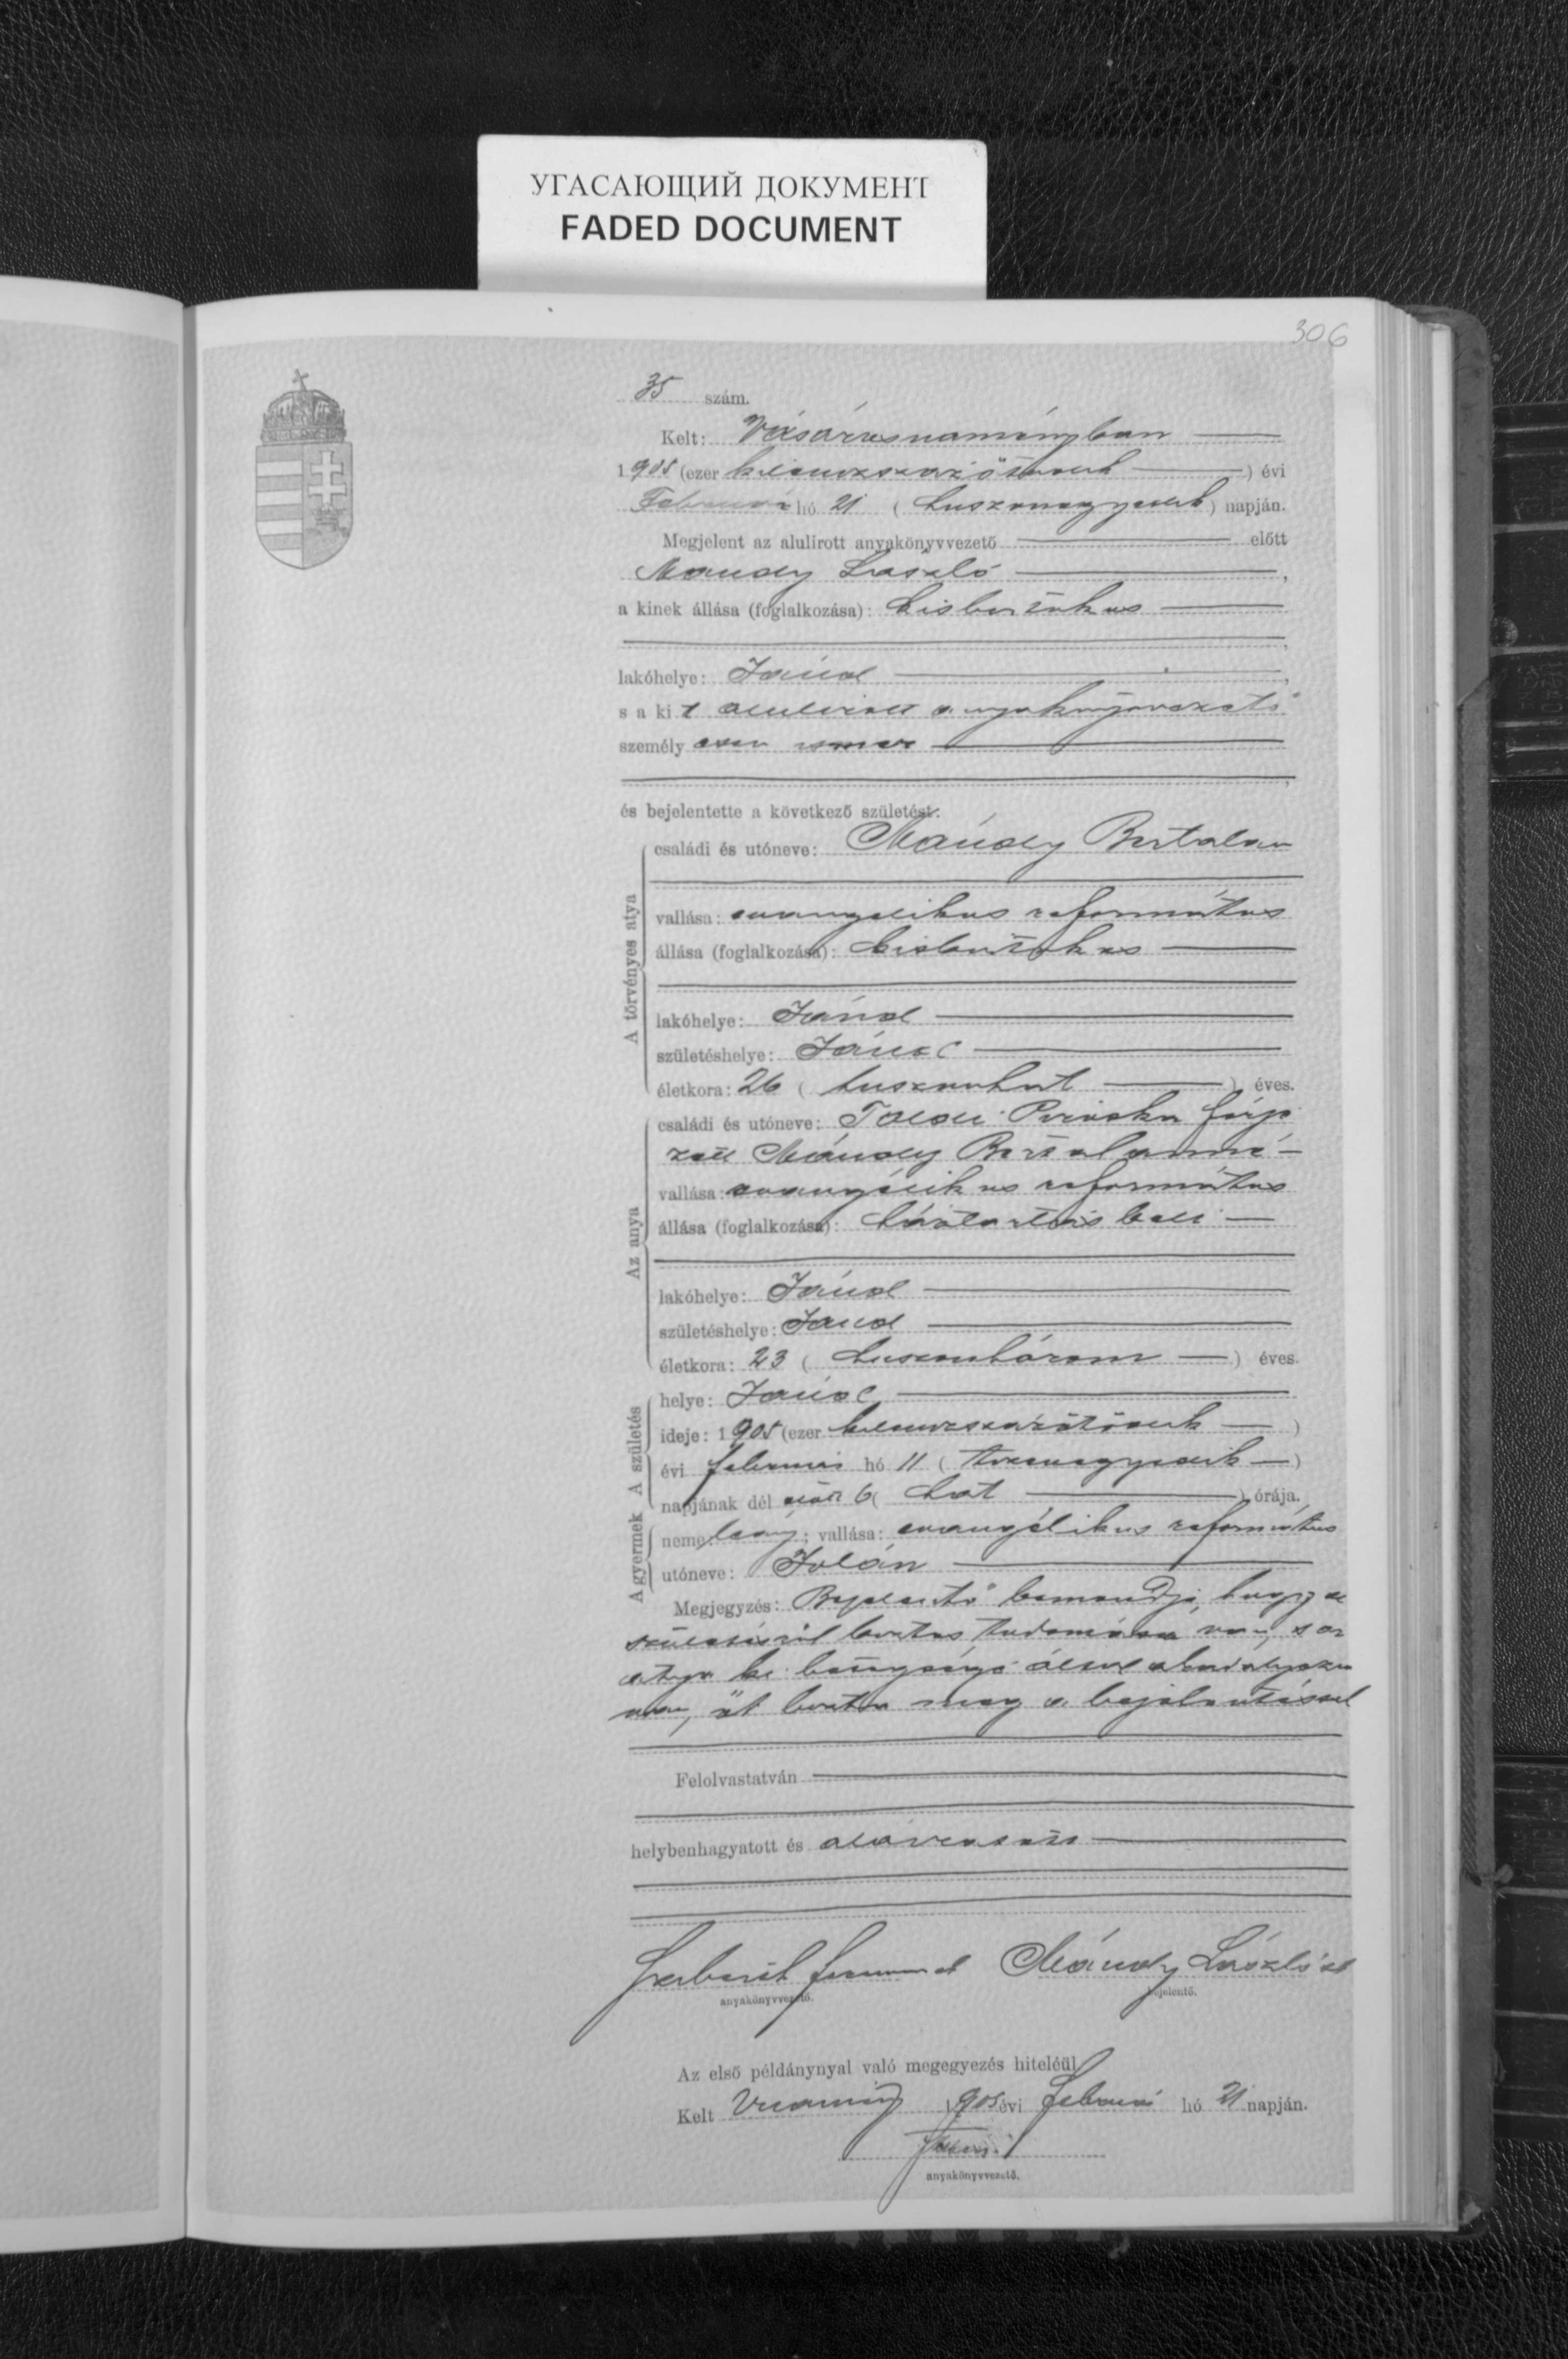 УГАСАЮЩИЙ ДОКУМЕНТ
FADED DOCUMENT
306
35 szám.
Kelt: Vásárosnaményban
1905 (ezer kilenczszázötödik) évi
Február hó 21 (huszonegyedik) napján.
Megjelent az alulirott anyakönyvvezető előtt
Mándy László,
a kinek állása (foglalkozása): kisbirtokos
lakóhelye: Jánd,
s a kit alulirott anyakönyvvezető
személyesen ismer
és bejelentette a következő születést:
A törvényes atya
családi és utóneve: Mándy Bertalan
vallása: evangelikus református
állása (foglalkozása): kisbirtokos
lakóhelye: Jánd
születéshelye: Jánd
életkora: 26 (huszonhat) éves.
Az anya
családi és utóneve: Piroska férje
zett Mándy Bertalanné
vallása: evangélikus református
állása (foglalkozása): háztartásbeli
lakóhelye: Jánd
születéshelye: Jánd
életkora: 23 (huszonhárom) éves.
A születés
helye: Jánd
ideje: 1905 (ezer kilenczszázötödik)
évi február hó 11 (tizenegyedik)
napjának dél előtt 6 (hat) órája.
A gyermek
neme: leány; vallása: evangélikus református
utóneve: Jolán
Megjegyzés: Bejelentő bemondja, hogy a
születésről biztos tudomása van, s az
atya ki betegsége által akadályozva
van, őt bízta meg a bejelentéssel
Felolvastatván
helybenhagyatott és aláiratott
Mándy László
anyakönyvvezető.
bejelentő.
Az első példánynyal való megegyezés hiteléül
Kelt Vnamény 1905 évi február hó 21 napján.
anyakönyvvezető.